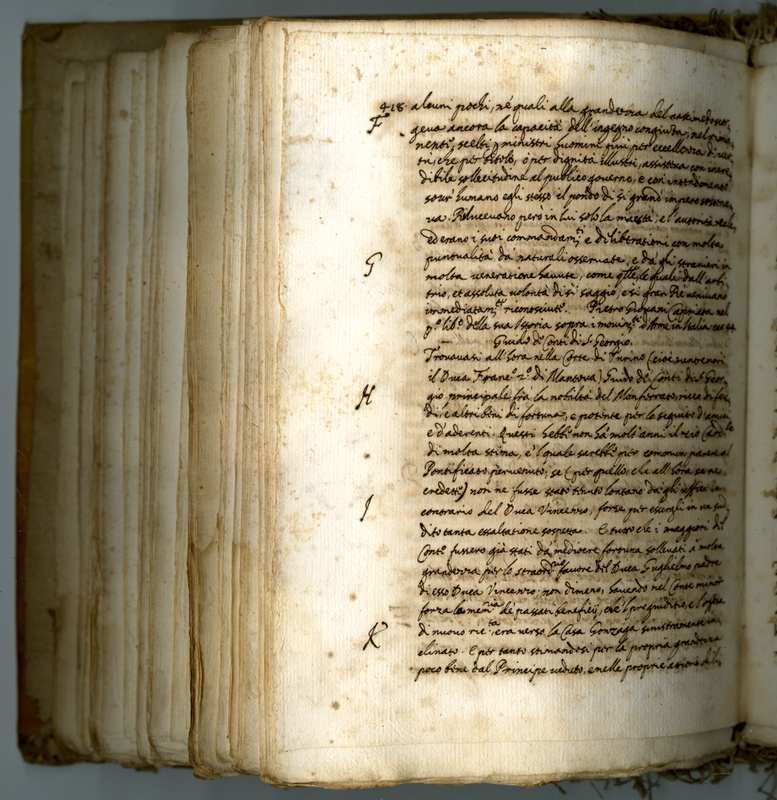 418 alcuni pochi, ne quali alla grandezza del nascimento sor-
F
geva ancora la capacità dell'ingegno congiunta, nel rima-
nente, scelti p ministri huomini più per eccellenza di vir-
tù, che per titolo, o per dignità illustri, assisteva con incre-
dibile sollecitudine al publico governo, e con
sour' humano egli stesso il pondo di sì grand' impero sostene-
va. Rilucevano però in lui solo la maestà, e l'autorità reale,
ed erano i suoi commandam.ti e diliberationi con molta
G
puntualità da naturali osservate, e da gli stranieri in
molta veneratione havute, come q̃lle, le quali dall'arbi-
trio, et assoluta volontà di sì saggio, e sì gran Rè venivano
immediatam.te riconosciute. Pietro Giovani Capriata nel
p.o lib.o della sua Istoria sopra i movim.ti d'Arme in Italia
Guido de Conti di S. Georgio.
Trovavasi all'hora nella Corte di Turino (cioè
il Duca Franc.o 2.o di Mantova) Guido de Conti di S. Geor-
H
gio principale frà la nobiltà del Monferrato, ricco di feu-
di, e altri beni di fortuna, e potente per lo seguito d'amici
e d'aderenti. Questi hebbe non hà molti anni il zio Card.le
di molta stima, e 'l quale sarebbe per comun parere al
Pontificato pervenuto, se (per quello, che all'hora se ne
credette) non ne fusse stato tenuto lontano da gli uffici in
I
contrario del Duca Vincenzo, forse per essergli in un sud-
dito tanta essaltatione sospetta. E tutto che i maggiori del
Conte fussero già stati da mediocre fortuna sollevati à molta
grandezza per lo straord.o favore del Duca Guglielmo padre
di esso Duca Vincenzo; non dimeno, havendo nel Conte minor
forza la mem.ria de' passati beneficij, che 'l pregiuditio, e l'offesa
K
di nuovo era verso la Casa Gonzaga sinistramente in-
clinato. E per tanto stimandosi per la propria grandezza
poco bene dal Principe veduto, e nelle proprie attioni